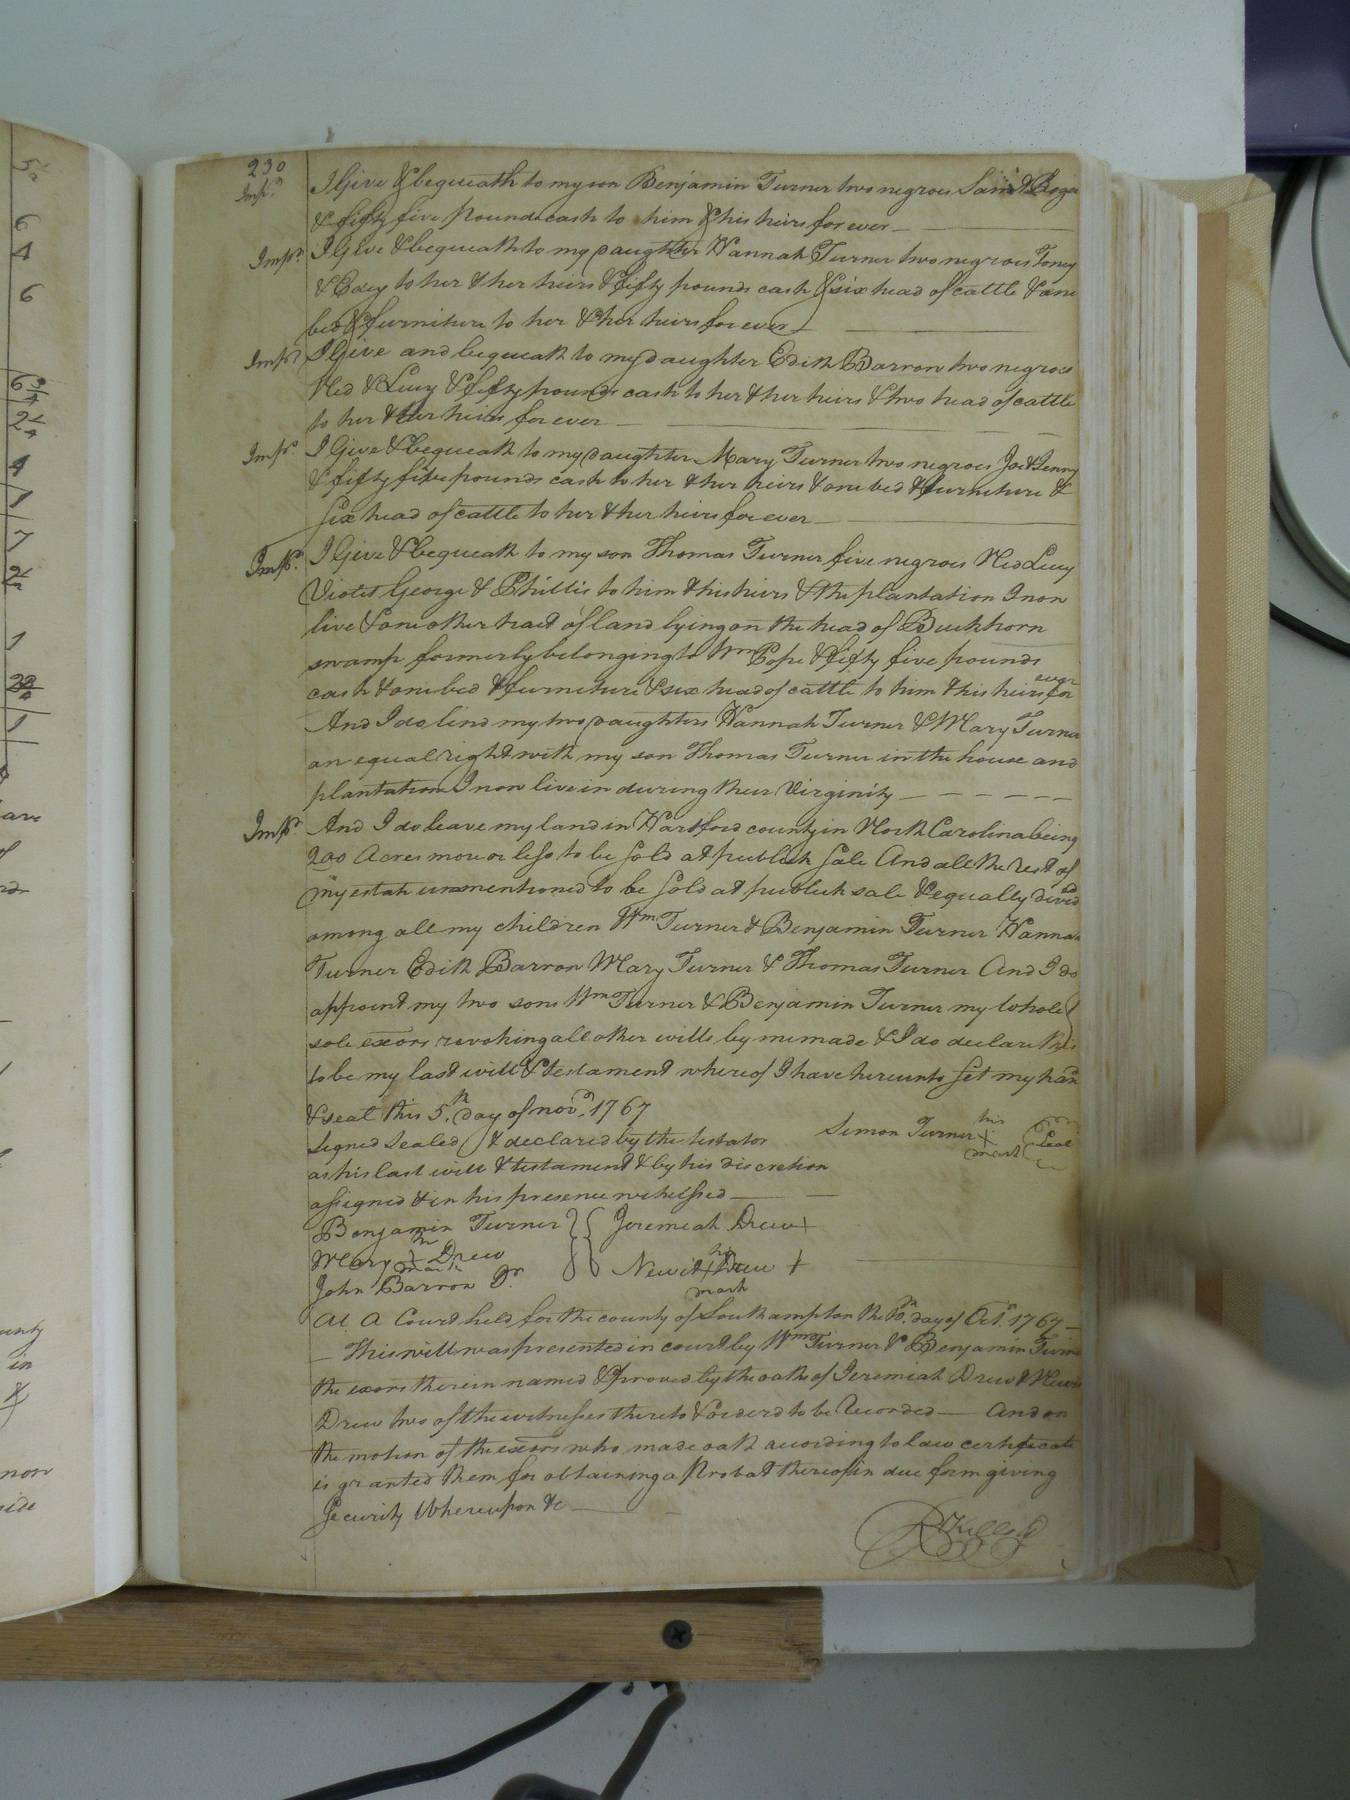 5½
6
4
6
6¾
2¼
4
1
7
2½
1
1
230
Imps. I Give & bequeath to my son Benjamin Turner two negroes Sam &
& fifty five Pounds cash to him & his heirs for ever
Imps. I Give & bequeath to my Daughter Hannah Turner two negroes Toney
& Edey to her & her heirs & fifty pounds cash & six head of cattle & one
bed & furniture to her & her heirs for ever
Imps. I Give and bequeath to my Daughter Edith Barron two negroes
Ned & Lucy & fifty pounds cash to her & her heirs & two head of cattle
to her & her heirs for ever
Imps. I Give & bequeath to my Daughter Mary Turner two negroes Joe & Jenny
& fifty five pounds cash to her & her heirs & one bed & furniture &
six head of cattle to her & her heirs for ever
Imps. I Give & bequeath to my son Thomas Turner five negroes Ned Lucy
Violet George & Phillis to him & his heirs & the plantation I now
live & one other tract of land lying on the head of Buckhorn
swamp formerly belonging to Wm Pope & fifty five pounds
cash & one bed & furniture & six head of cattle to him & his heirs for ever
And I do lend my two Daughters Hannah Turner & Mary Turner
an equal right with my son Thomas Turner in the house and
plantation I now live in during their Virginity
Imps. And I do leave my land in Hartford county in North Carolina being
200 Acres more or less to be sold at publick sale And all the rest of
my estate unmentioned to be sold at publick sale & equally divid
among all my children Wm Turner & Benjamin Turner Hannah
Turner Edith Barron Mary Turner & Thomas Turner And I do
appoint my two sons Wm Turner & Benjamin Turner my whole &
sole exors revoking all other wills by me made & I do declare this
to be my last will & testament whereof I have hereunto set my han
& seal this 5th day of novr. 1767
Signed Sealed & declared by the testator Simon Turner his X mark Seal
as his last will & testament & by his discretion
assigned & in his presence witnessed
Benjamin Turner Jeremiah Drew +
Mary her + mark Drew Newit his + mark Drew +
John Barron Jr.
At A Court held for the county of Southampton the day of Oct. 1767
This will was presented in court by Wm Turner & Benjamin Turne
the exors therein named & proved by the oaths of Jeremiah Drew & Newit
Drew two of the witnesses thereto & orderd to be Recorded And on
the motion of the exors who made oath according to law certificate
is granted them for obtaining a Probat thereof in due form giving
Security Whereupon &c